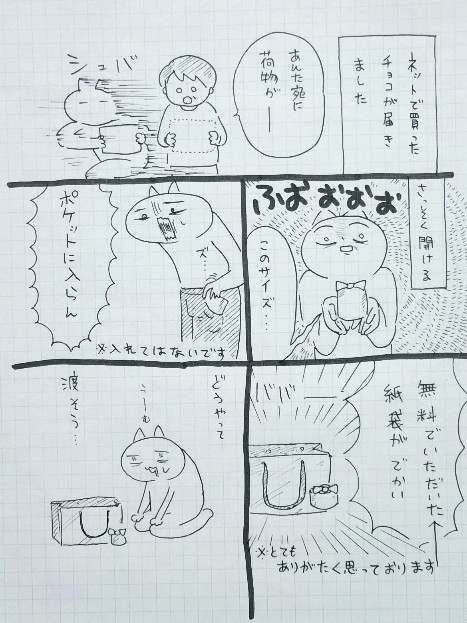 ネットで買った
チョコが届き
ました
あんた宛に
荷物がー
シュバ
さっそく開ける
ふおおおおお
このサイズ…
ズ…
ポケットに入らん
※入れてはないです
無料でいただいた
紙袋がでかい
ババーー
※とても
ありがたく思っております
どうやって
うーむ
渡そう…